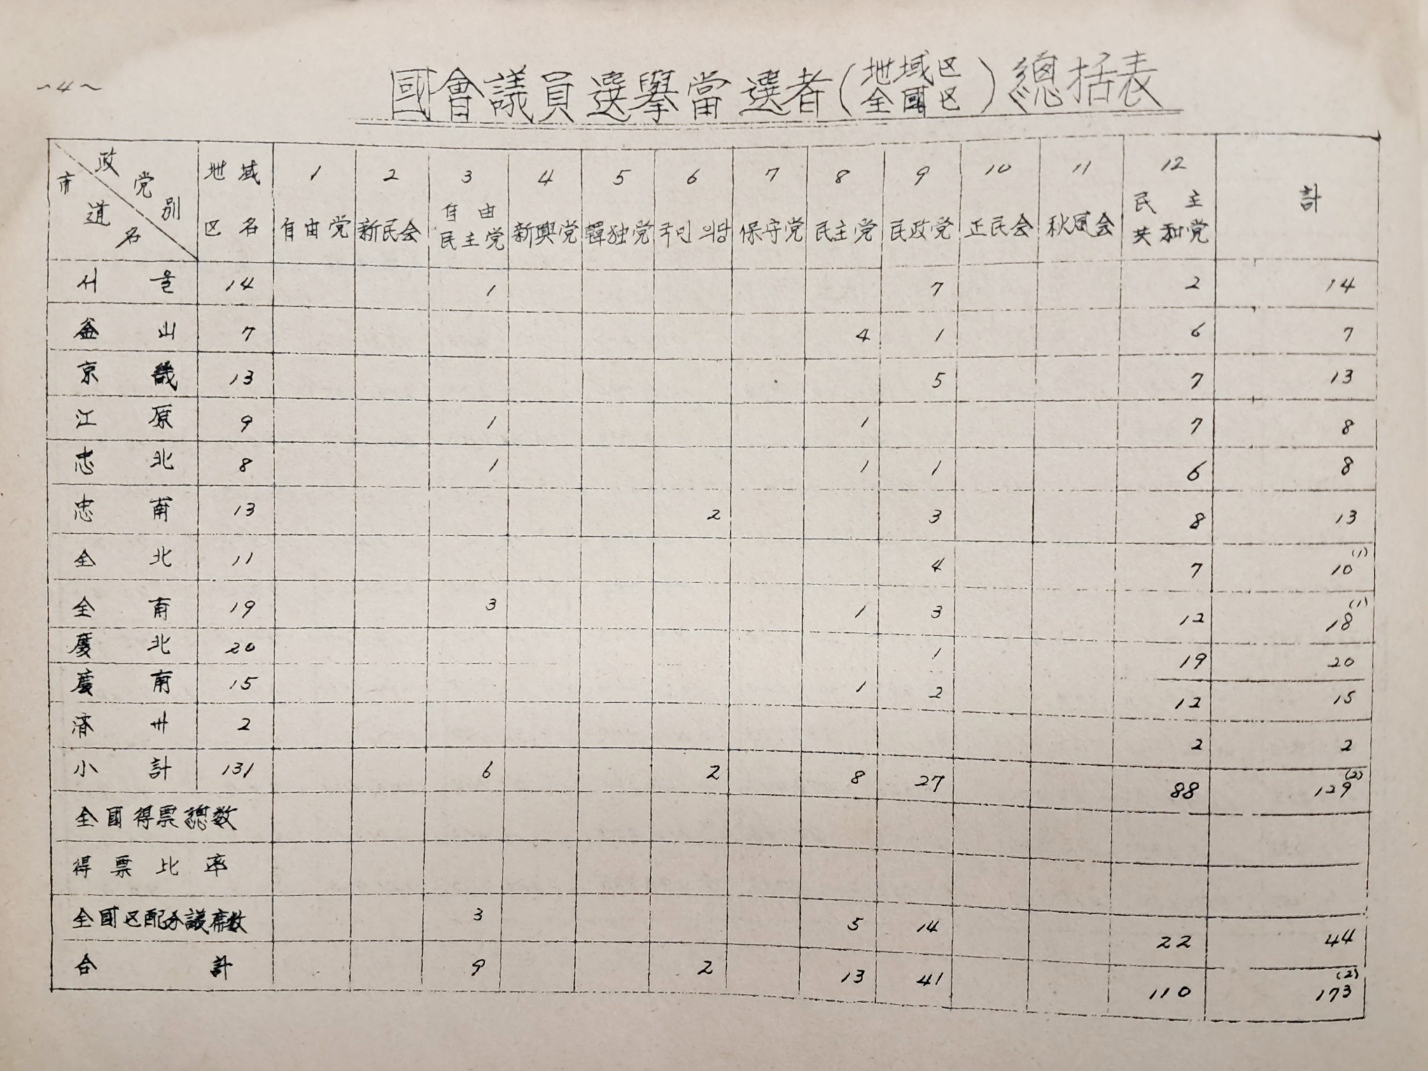 ~4~
國會議員選擧當選者(地域区 全國区)總括表
市道名 政党別 地域区名 1 自由党 2 新民会 3 自由民主党 4 新興党 5 韓独党 6 국민의당 7 保守党 8 民主党 9 民政党 10 正民会 11 秋風会 12 民主共和党 計
서울 14 1 7 2 14
釜山 7 4 1 6 7
京畿 13 5 7 13
江原 9 1 1 7 8
忠北 8 1 1 1 6 8
忠南 13 2 3 8 13
全北 11 4 7 10(1)
全南 19 3 1 3 12 18(1)
慶北 20 1 19 20
慶南 15 1 2 12 15
済州 2 2 2
小計 131 6 2 8 27 88 129(2)
全国得票總数
得票比率
全国区配分議席数 3 5 14 22 44
合計 9 2 13 41 110 173(2)